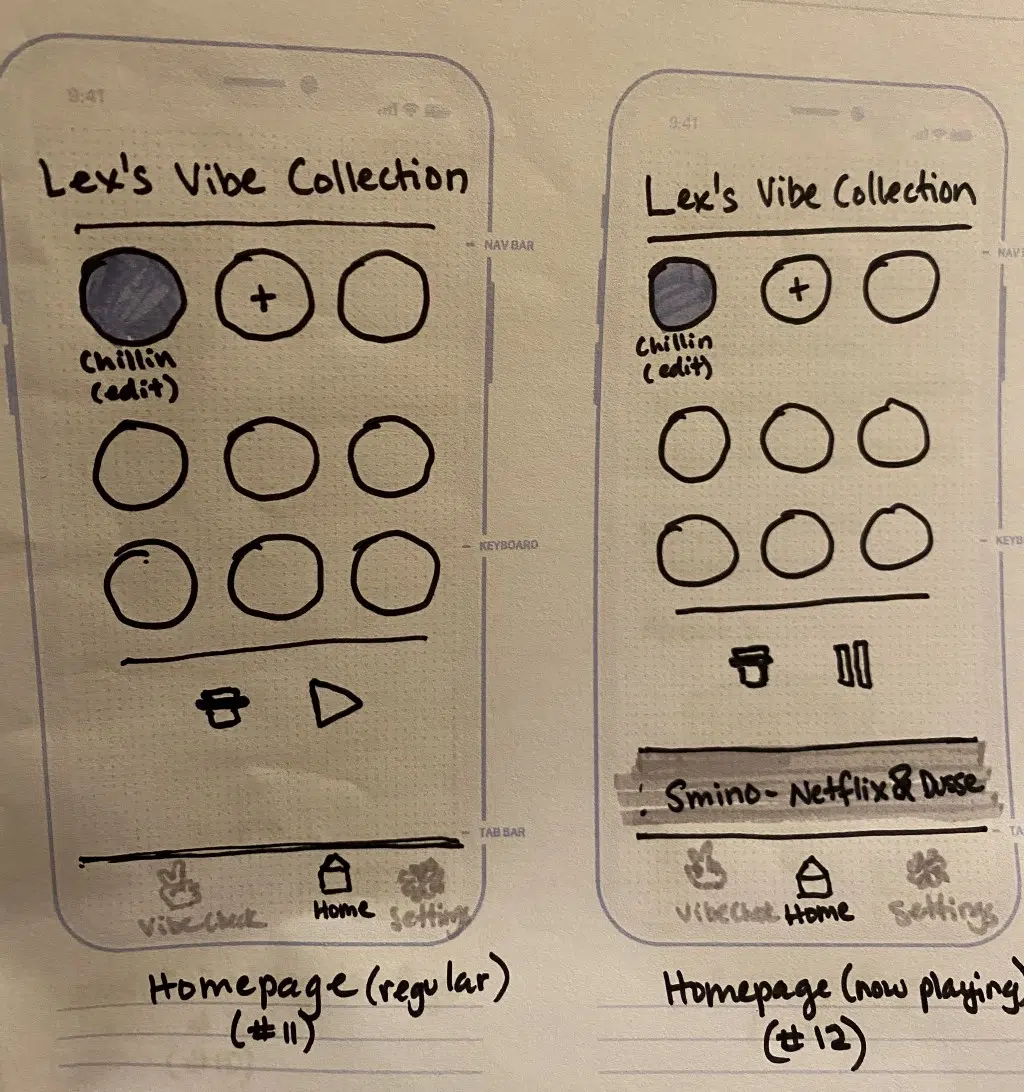 9:41
Lex's Vibe Collection
NAV BAR
+
Chillin
(edit)
KEYBOARD
TAB BAR
Vibe Check
Home
Settings
Homepage (regular)
(#11)
9:41
Lex's Vibe Collection
NAV
+
Chillin
(edit)
KEYB
Smino - Netflix & Dusse
TA
Home
Settings
Homepage (now playing
(#12)